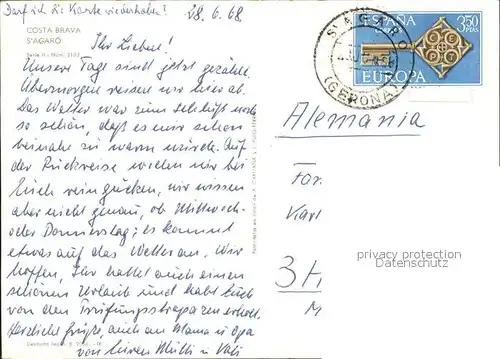 Darf ich die Karte wiederhaben! 28.6.68
COSTA BRAVA
S'AGARÓ
Ihr Lieben!
Unsere Tage sind jetzt gezählt.
Übermorgen reisen wir hier ab.
Das Wetter war zum Schluß noch
so schön, daß es mir schon
beinahe zu warm wurde. Auf
der Rückreise wollen wir bei
Euch reingucken, wir wissen
aber nicht genau, ob Mittwoch
oder Donnerstag; es kommt
etwas auf das Wetter an. Wir
hoffen, Ihr hattet auch einen
schönen Urlaub und habt Euch
von den Prüfungsstrapazen erholt.
Herzliche Grüße, auch an Mama u Opa
von Euren Mutti u Vati
S'AGARO
(GERONA)
ESPAÑA
CORREOS
3,50
PTAS
EUROPA
Alemania
Kar
3
privacy protection
Datenschutz